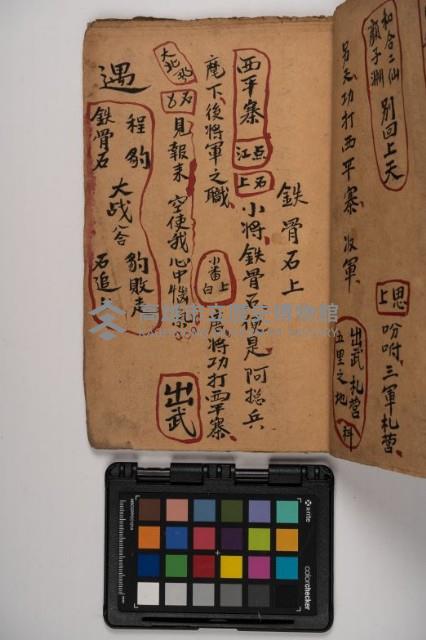 和合二仙
顏子淵
別回上天
思上
吩咐三軍札營
另天功打西平寨
收軍
出武札營
五里之地
科
鉄骨石上
西平寨
点江
石上
小將鉄骨石便是阿搃兵
麾下後將軍之職
小番上白
將功打西平寨
大北
石
見報來空使我心中惱
出武
遇
程豹
鉄骨石
大战答
豹敗走
石追
高雄市立歷史博物館
KAOHSIUNG MUSEUM OF HISTORY
x-rite
colorchecker